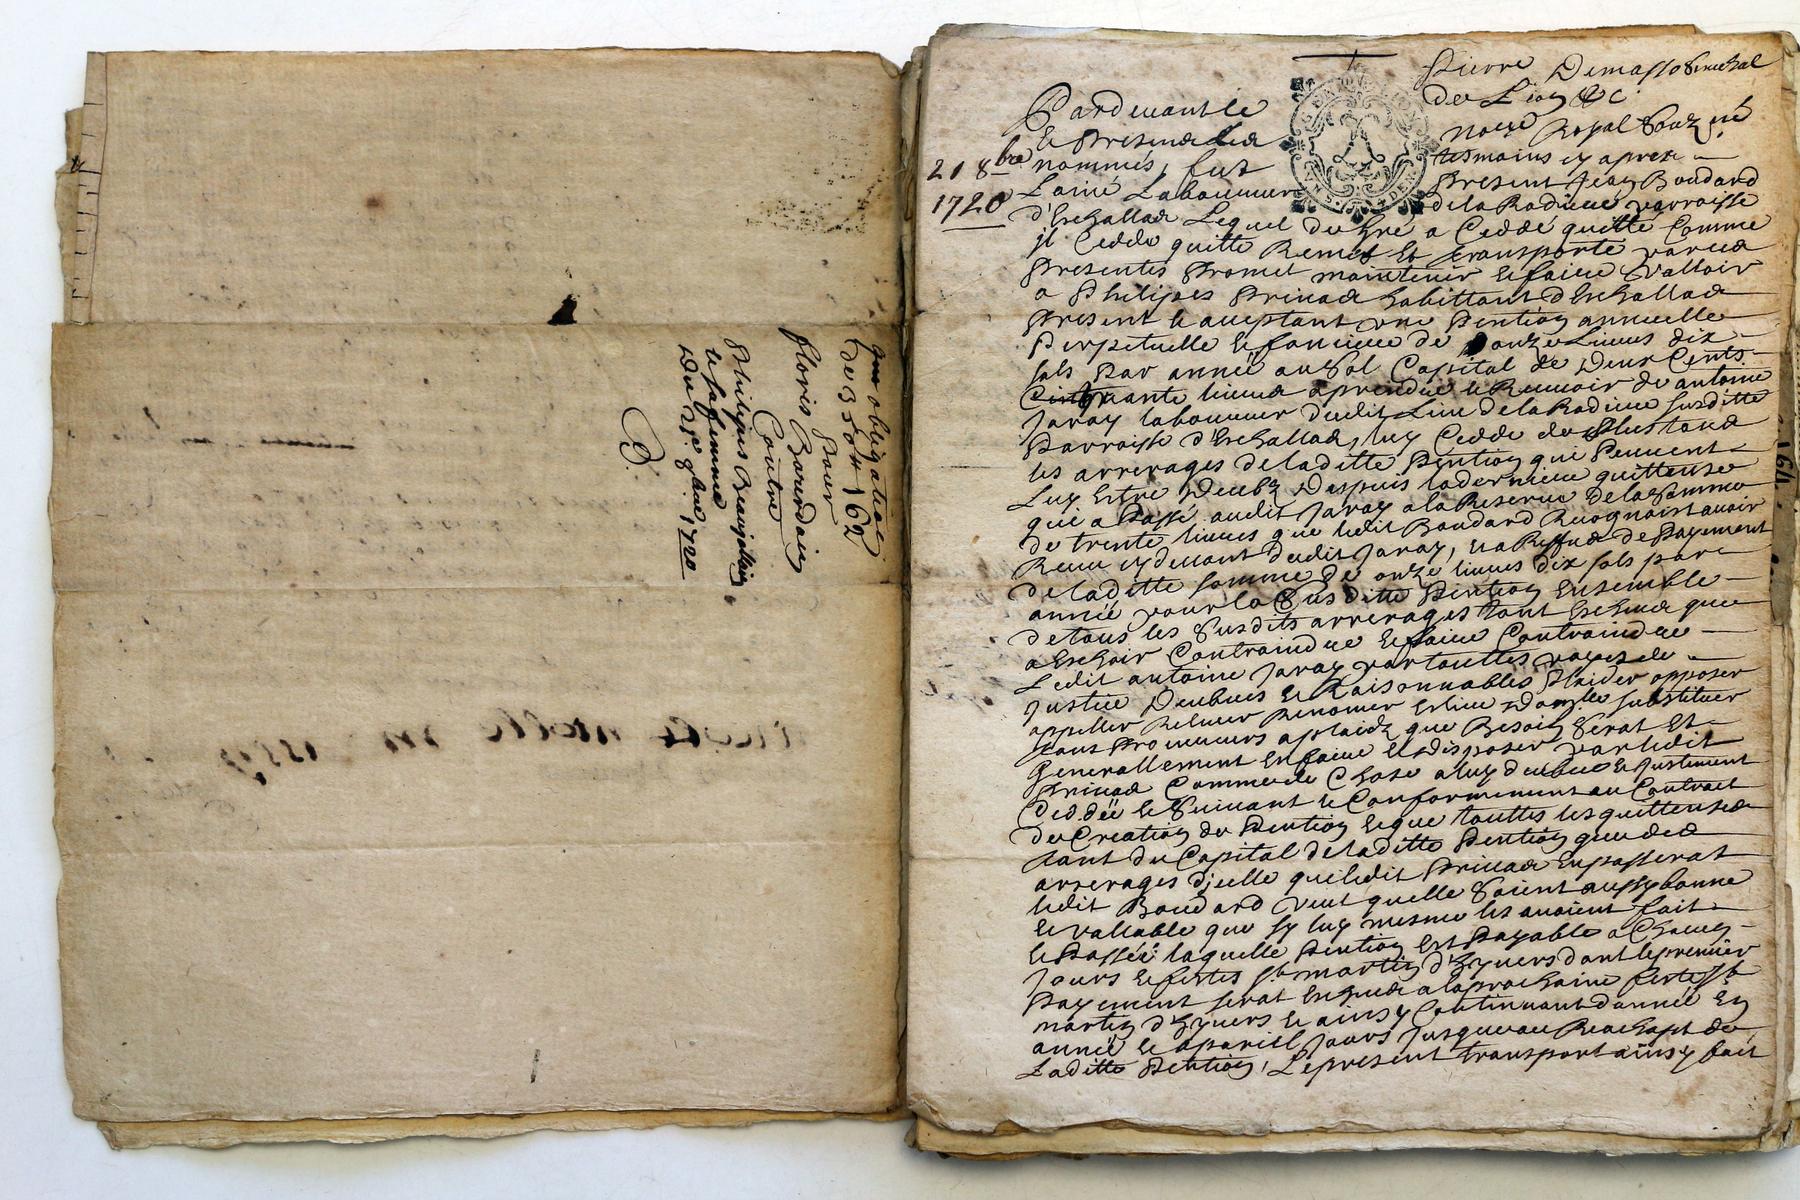 obligation
de 350 ᵗᵗ 16ˢ
Pour
floris Bourdain
Contre
Philippes Beaujollin
et sa femme
Du 21ᵉ 8bre 1720
21 8bre
1720
Pierre
de Lion &c
Pardevant le Notre Royal Souz ne
et Presence des tesmoins cy apres
nommés, fut Present Jean Boudard
Laine Laboureur de la Radiue parroisse
d'Eschallas Lequel de gre a Ceddé quitte Comme
jl Cedde quitte Remet Et transporte par ces
Presentes Promet maintenir et faire Valloir
a Philipes Prinas habittant d'Eschallas
Present et acceptant une Pention annuelle
Perpetuelle et fonciere de onze Liures dix
sols Par année au Sol Capital de Deux Cents
Cinquante liures aprendre et Receuoir de antoine
Jaray laboureur dudit Lieu de la Radiue susditte
Parroisse d'Eschallas, luy Cedde de Plus tous
les arrerages de laditte Pention qui Peuuent
Luy Estre Deubz Despuis la derniere quittense
qui a Passé audit Jaray a la Reserue de la Somme
de trente liures que ledit Boudard Recognoist auoir
Receu cy deuant dudit Jaray, Et a Reffus de Payement
de laditte somme de onze liures dix sols par
année pour la Susditte Pention Ensemble
de tous les Susdits arrerages tant Escheus que
a Eschoir Contraindre et faire Contraindre
Ledit antoine Jaray par touttes voyes de
Justice Deubues et Raisonnables Plaider opposer
appeller Releuer Renoncer Eslire Domille substituer
tous Procureurs a plaidz que Besoin Serat Et
Generallement En faire et disposer par ledit
Prinas Comme de Chose a luy deubue et Justement
Ceddée et Suiuant et Conformement au Contract
de Creation de Pention Et que touttes les quittenses
tant du Capital de laditte Pention que des
arrerages d'jcelle que ledit Prinas En passerat
ledit Boudard veut quelle Soient aussy bonne
et vallable que sy luy mesme les auoient fait
et Passée; laquelle Pention Est Payable a Chacun
Jours et festes St martin d'hyuers dont le premier
Payement serat Escheu a la prochaine feste St
martin d'hyuers Et ainsy Continuant d'année En
année et a pareil Jours Jusques au Reachapt de
Laditte Pention, Le present transport ainsy fait